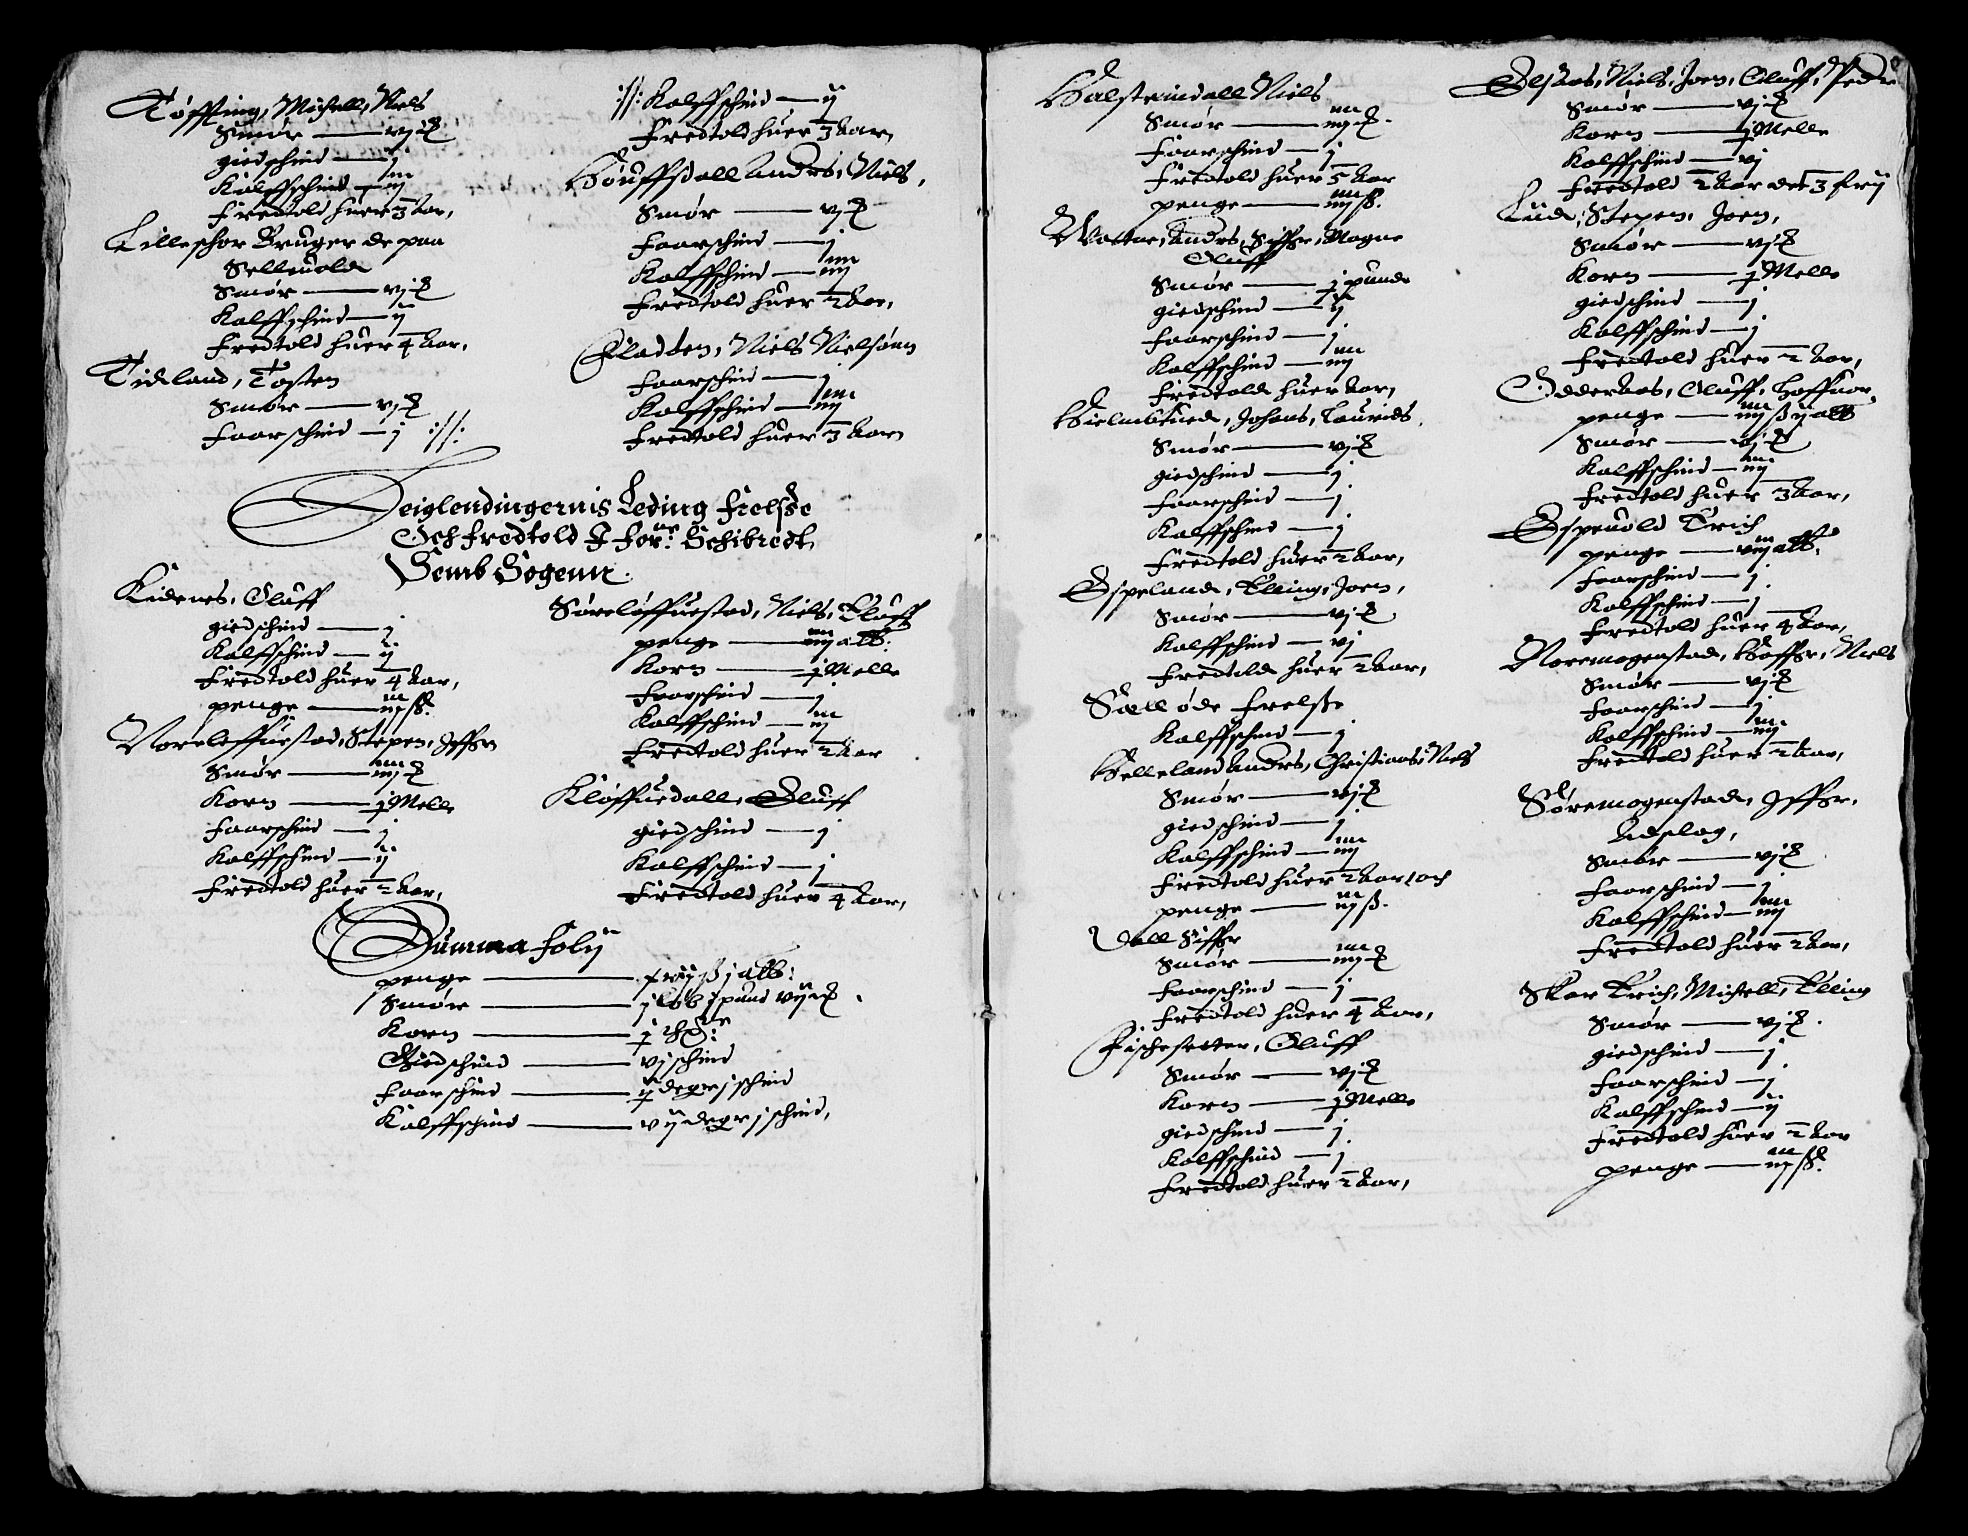 Tøffting, Michell, Niels
Smør — vj
giedschind — j
Kalffschind — iij
Fredtold huer 3 Aar,
Lilleschor Bruger de paa
Selleuold
Smør — vj
Kalffschind — ij
Fredtold huer 4 Aar,
Tideland, Tosten
Smør — vj
Faarschind — j ://:
://: Kalffschind — ij
Fredtold huer 3 Aar,
Houffsdall Andrs, Niels,
Smør — vj
Faarschind — j
Kalffschind — iiij
Fredtold huer 2 Aar,
Fladden, Niels Nielsønn
Faarschind — j
Kalffschind — iiij
Fredtold huer 3 Aar
Deiglendingernis Leding Frelsße
Och Fredtold I For: Schibredt,
Semb Sogenn
Kidenes, Oluff
giedschind — j
Kalffschind — ij
Fredtold huer 4 Aar,
penge — iij ß
Noreleffuestad, Stepen, Jffer
Smør — iiij
Korn — j Melle
Faarschind — j
Kalffschind — ij
Fredtold huer 2 Aar,
Søreløffuestad, Niels, Oluff
penge — alb:
Korn — j Melle
Faarschind — j
Kalffschind — iij
Fredtold huer 2 Aar
Kløffuedall, Oluff
giedschind — j
Kalffschind — j
Fredtold huer 4 Aar,
Summa Folij
penge — ß j alb:
Smør — j løb j pund vij
Korn — j
Giedschind — vj schind
Faarschind — ij deger j schind
Kalffschind — vij deger j schind,
Halsteindall Niels
Smør — iiij
Faarschind — j
Fredtold huer 5 Aar
penge — iiij ß
Wattne, Andrs, Siffer, Mogne
Oluff
Smør — j pund
giedschind — ij
Faarschind — j
Kalffschind — iiij
Fredtold huer Aar,
Hielmbrued, Johans, Laurids,
Smør — vj
giedschind — j
Faarschind — j
Kalffschind — j
Fredtold huer 2 Aar,
Espeland, Elling, Joen,
Smør — vj
Kalffschind — vj
Fredtold huer 2 Aar,
Sæll øde Frelsße
Kalffschind — j
Helleland Andrs, Christians, Niels
Smør — vj
giedschind — j
Kalffschind — iiij
Fredtold huer 2 Aar, och
penge — iij ß
Dall Siffer
Smør — iiij
Faarschind — j
Fredtold huer 4 Aar,
Fischesetter, Oluff
Smør — vj
Korn — j Melle
giedschind — j
Kalffschind — j
Fredtold huer 2 Aar,
Niels, Joen, Oluff, Peder
Smør — vj
Korn — j Melle
Kalffschind — vj
Fredtold 2 Aar det 3 frij
Lud, Stepen, Joen,
Smør — vj
Korn — j Melle
giedschind — j
Kalffschind — j
Fredtold huer 2 Aar,
Odderaas, Oluff,
penge — iiij ß ij alb
Smør — vj
Kalffschind — iiij
Fredtold huer 3 Aar,
Espeuold Erich
penge — alb:
Faarschind — j
Kalffschind — j
Fredtold huer 4 Aar,
Noremogenstad, Niels
Smør — vj
Faarschind — j
Kalffschind — iiij
Fredtold huer 2 Aar,
Søremogenstad, Jffer,
Aaslag,
Smør — vj
Faarschind — j
Kalffschind — iiij
Fredtold huer 2 Aar,
Skar Erich, Michell, Elling
Smør — vj
giedschind — j
Faarschind — j
Kalffschind — ij
Fredtold huer 2 Aar
penge — iij ß